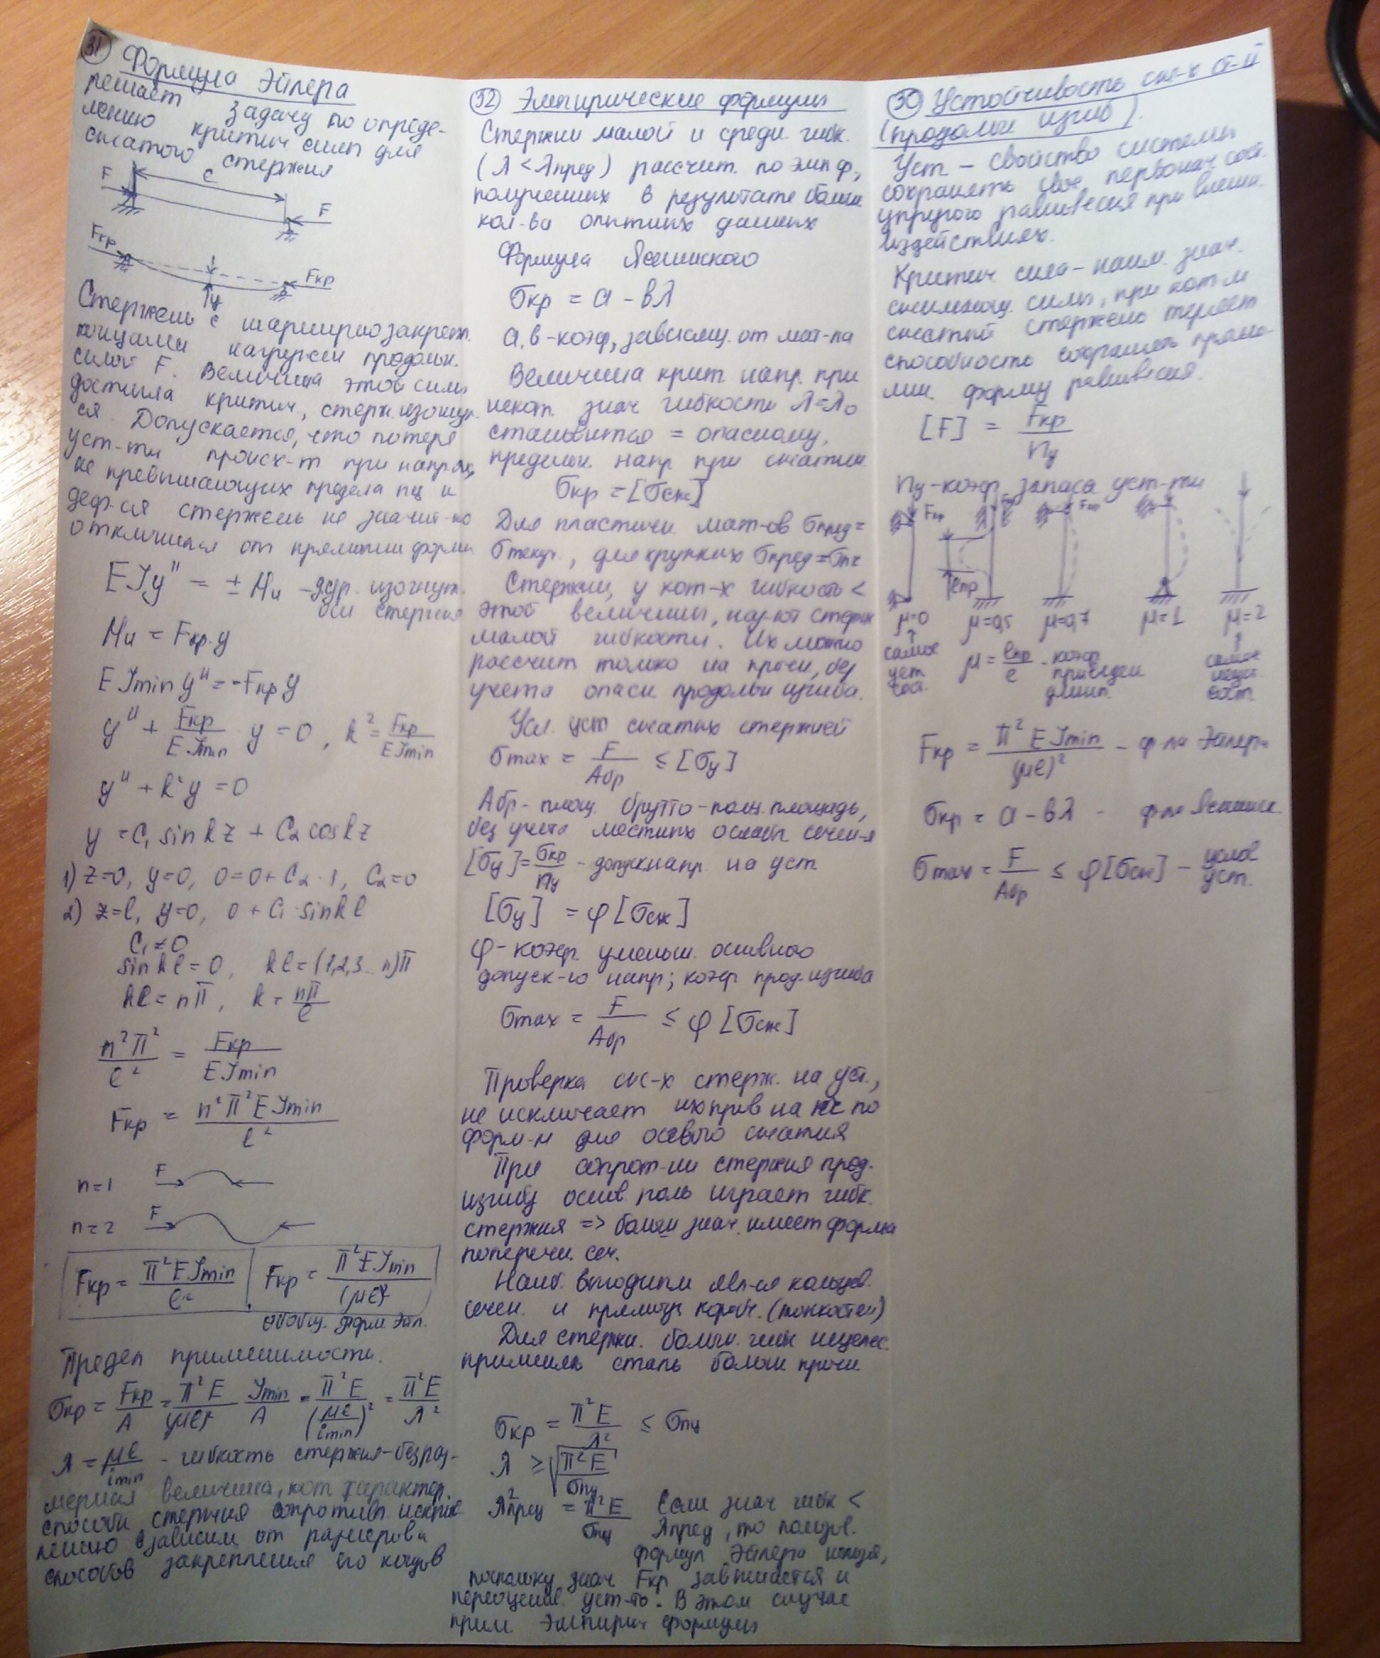 31 Формула Эйлера
решает задачу по опреде-
лению критич силы для
сжатого стержня
F ℓ F
Fкр y Fкр
Стержень с шарнирно закрепл.
концами нагружен продольн.
силой F. Величина этой силы
достигла критич, стерж. изогнул
ся. Допускается, что потеря
уст-ти происх-т при напряж,
не превышающих предела пц и
деф-ся стержень не значит-но
отклонился от прямолин формы
EJy'' = ± Mи - дур. изогнут.
оси стержня
Mи = Fкр·y
EJmin y'' = -Fкр y
y'' + Fкр/EJmin · y = 0, k² = Fкр/EJmin
y'' + k²y = 0
y = C₁ sin kz + C₂ cos kz
1) z=0, y=0, 0=0+C₂·1, C₂=0
2) z=ℓ, y=0, 0+C₁·sin kℓ
C₁≠0
sin kℓ = 0, kℓ = (1,2,3...n)π
kℓ = nπ, k = nπ/ℓ
n²π²/ℓ² = Fкр/EJmin
Fкр = n²π²EJmin/ℓ²
n=1 F
n=2 F
Fкр = π²EJmin/ℓ², Fкр = π²EJmin/(μℓ)²
обобщ. форм Эйл.
Предел применимости.
σкр = Fкр/A = π²E/(μℓ)² Jmin/A = π²E/(μℓ/imin)² = π²E/λ²
λ = μℓ/imin - гибкость стержня - безраз-
мерная величина, кот характер.
способн стержня сопротивл. искрив
лению в зависим от размеров и
способов закрепления его концов
32 Эмпирические формулы
Стержни малой и средн. гибк.
(λ < λпред) рассчит. по эмп ф,
полученных в результате больш
кол-ва опытных данных
Формула Ясинского
σкр = a - bλ
a, b - коэф, зависящ. от мат-ла
Величина крит. напр. при
некот. знач гибкость λ=λ₀
становится = опасному,
предельн. напр при сжатии
σкр = [σсж]
Для пластичн. мат-ов σпред=
σтекуч, для хрупких σпред=σпч
Стержни, у кот-х гибкость <
этой величины, наз-ют стерж
малой гибкости. Их можно
рассчит только на прочн, без
учета опасн продольн изгиба.
Усл. уст сжатых стержней
σmax = F/Aбр ≤ [σу]
Aбр - площ. брутто - полн. площадь,
без учета местных ослабл сечен-я
[σу] = σкр/nу - допуск напр. на уст
[σу] = φ[σсж]
φ - коэф. уменьш. основного
допуск-го напр; коэф прод. изгиба
σmax = F/Aбр ≤ φ[σсж]
Проверка сж-х стерж. на уст.,
не исключает их пров на по
форм-м для осевого сжатия
При сопрот-ии стержня прод.
изгибу основ. роль играет гибк.
стержня => больш знач. имеет форма
поперечн. сеч.
Наиб. выгодным явл-ся кольцев.
сечен. и прямоуг короб. (тонкостен)
Для стержн. больш. гибк нецелес.
применять сталь больш прочн
σкр = π²E/λ² ≤ σпц
λ ≥ √π²E/σпц
λ²пред = π²E/σпц Если знач гибк <
λпред, то польз.
формул Эйлера нельзя,
поскольку знач Fкр завышается и
переоценив. уст-ть. В этом случае
прим эмпирич формулы
30 Устойчивость сж-х ст-й
(продольн изгиб).
Уст - свойство системы
сохранять свое первонач сост.
упругого равновесия при внешн.
воздействиях.
Критич. сила - наим. знач.
сжимающ. силы, при кот-м
сжатый стержень теряет
способность сохранять прямо-
лин. форму равновесия.
[F] = Fкр/nу
nу - коэф. запаса уст-ти
Fкр Fкр Fкр Fкр
μ=0 μ=0,5 μ=0,7 μ=1 μ=2
самое
уст.
сост.
μ = ℓпр/ℓ - коэф.
приведен
длины.
самое
неуст.
сост.
Fкр = π²EJmin/(μℓ)² - ф-ла Эйлера
σкр = a - bλ - ф-ла Ясинск.
σmax = F/Aбр ≤ φ[σсж] - услов
уст.